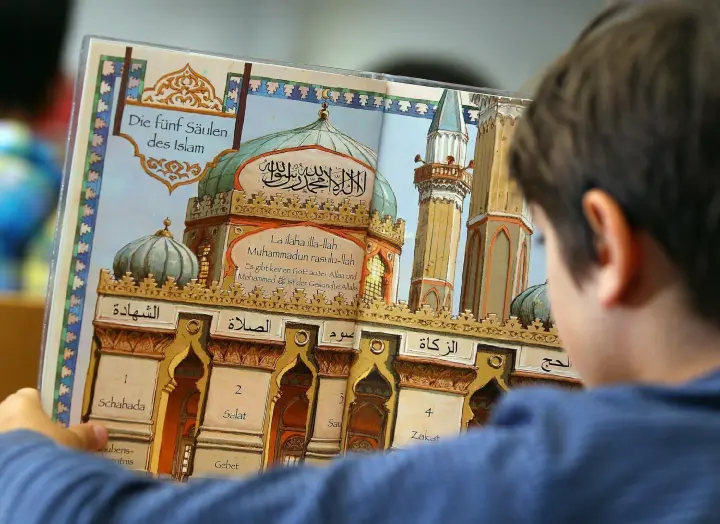 Die fünf Säulen
des Islam
لا اله الا الله محمد رسول الله
La ilaha illa-llah
Muhammadun rasulu-llah
Es gibt keinen Gott außer Allah und
Mohammed ist der Gesandte Allahs
الشهادة
الصلاة
صوم
الزكاة
الحج
1
Schahada
2
Salat
4
Zakat
Gebet